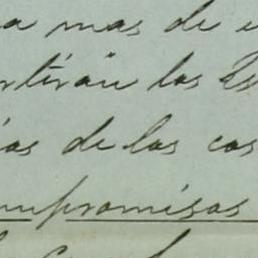 a mas de
rtirán los Es
ias de las cas
ompromisos